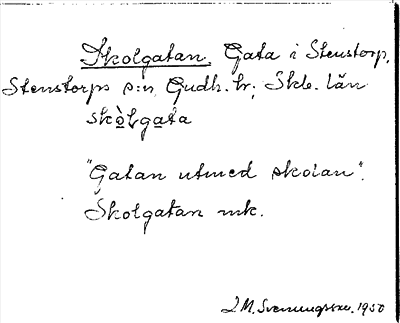 Skolgatan, Gata i Stenstorp,
Stenstorps s:n, Gudh. hr; Skb. län
skò̱lga̱ta
"Gatan utmed skolan".
Skolgatan mk.
J M. Svenungsson. 1950